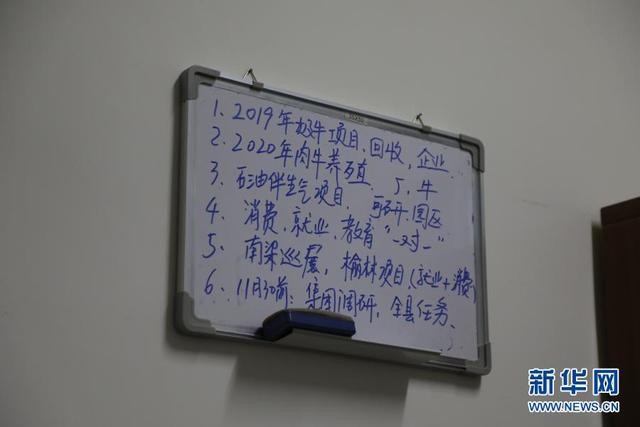 1、2019年奶牛项目、回收、企业、
2、2020年肉牛养殖、 5、牛
3、石油伴生气项目、 可研.园区
4、消费、就业、教育“一对一”
5、南梁巡展，榆林项目(就业+消费)
6、11月30前：集团调研，全县任务、
新华网
WWW.NEWS.CN